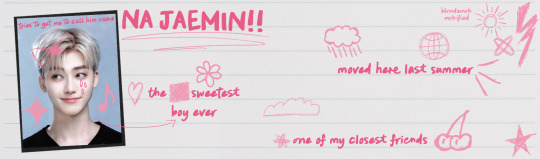 tries to get me to call him nana
NA JAEMIN!!
the sweetest
boy ever
moved here last summer
one of my closest friends